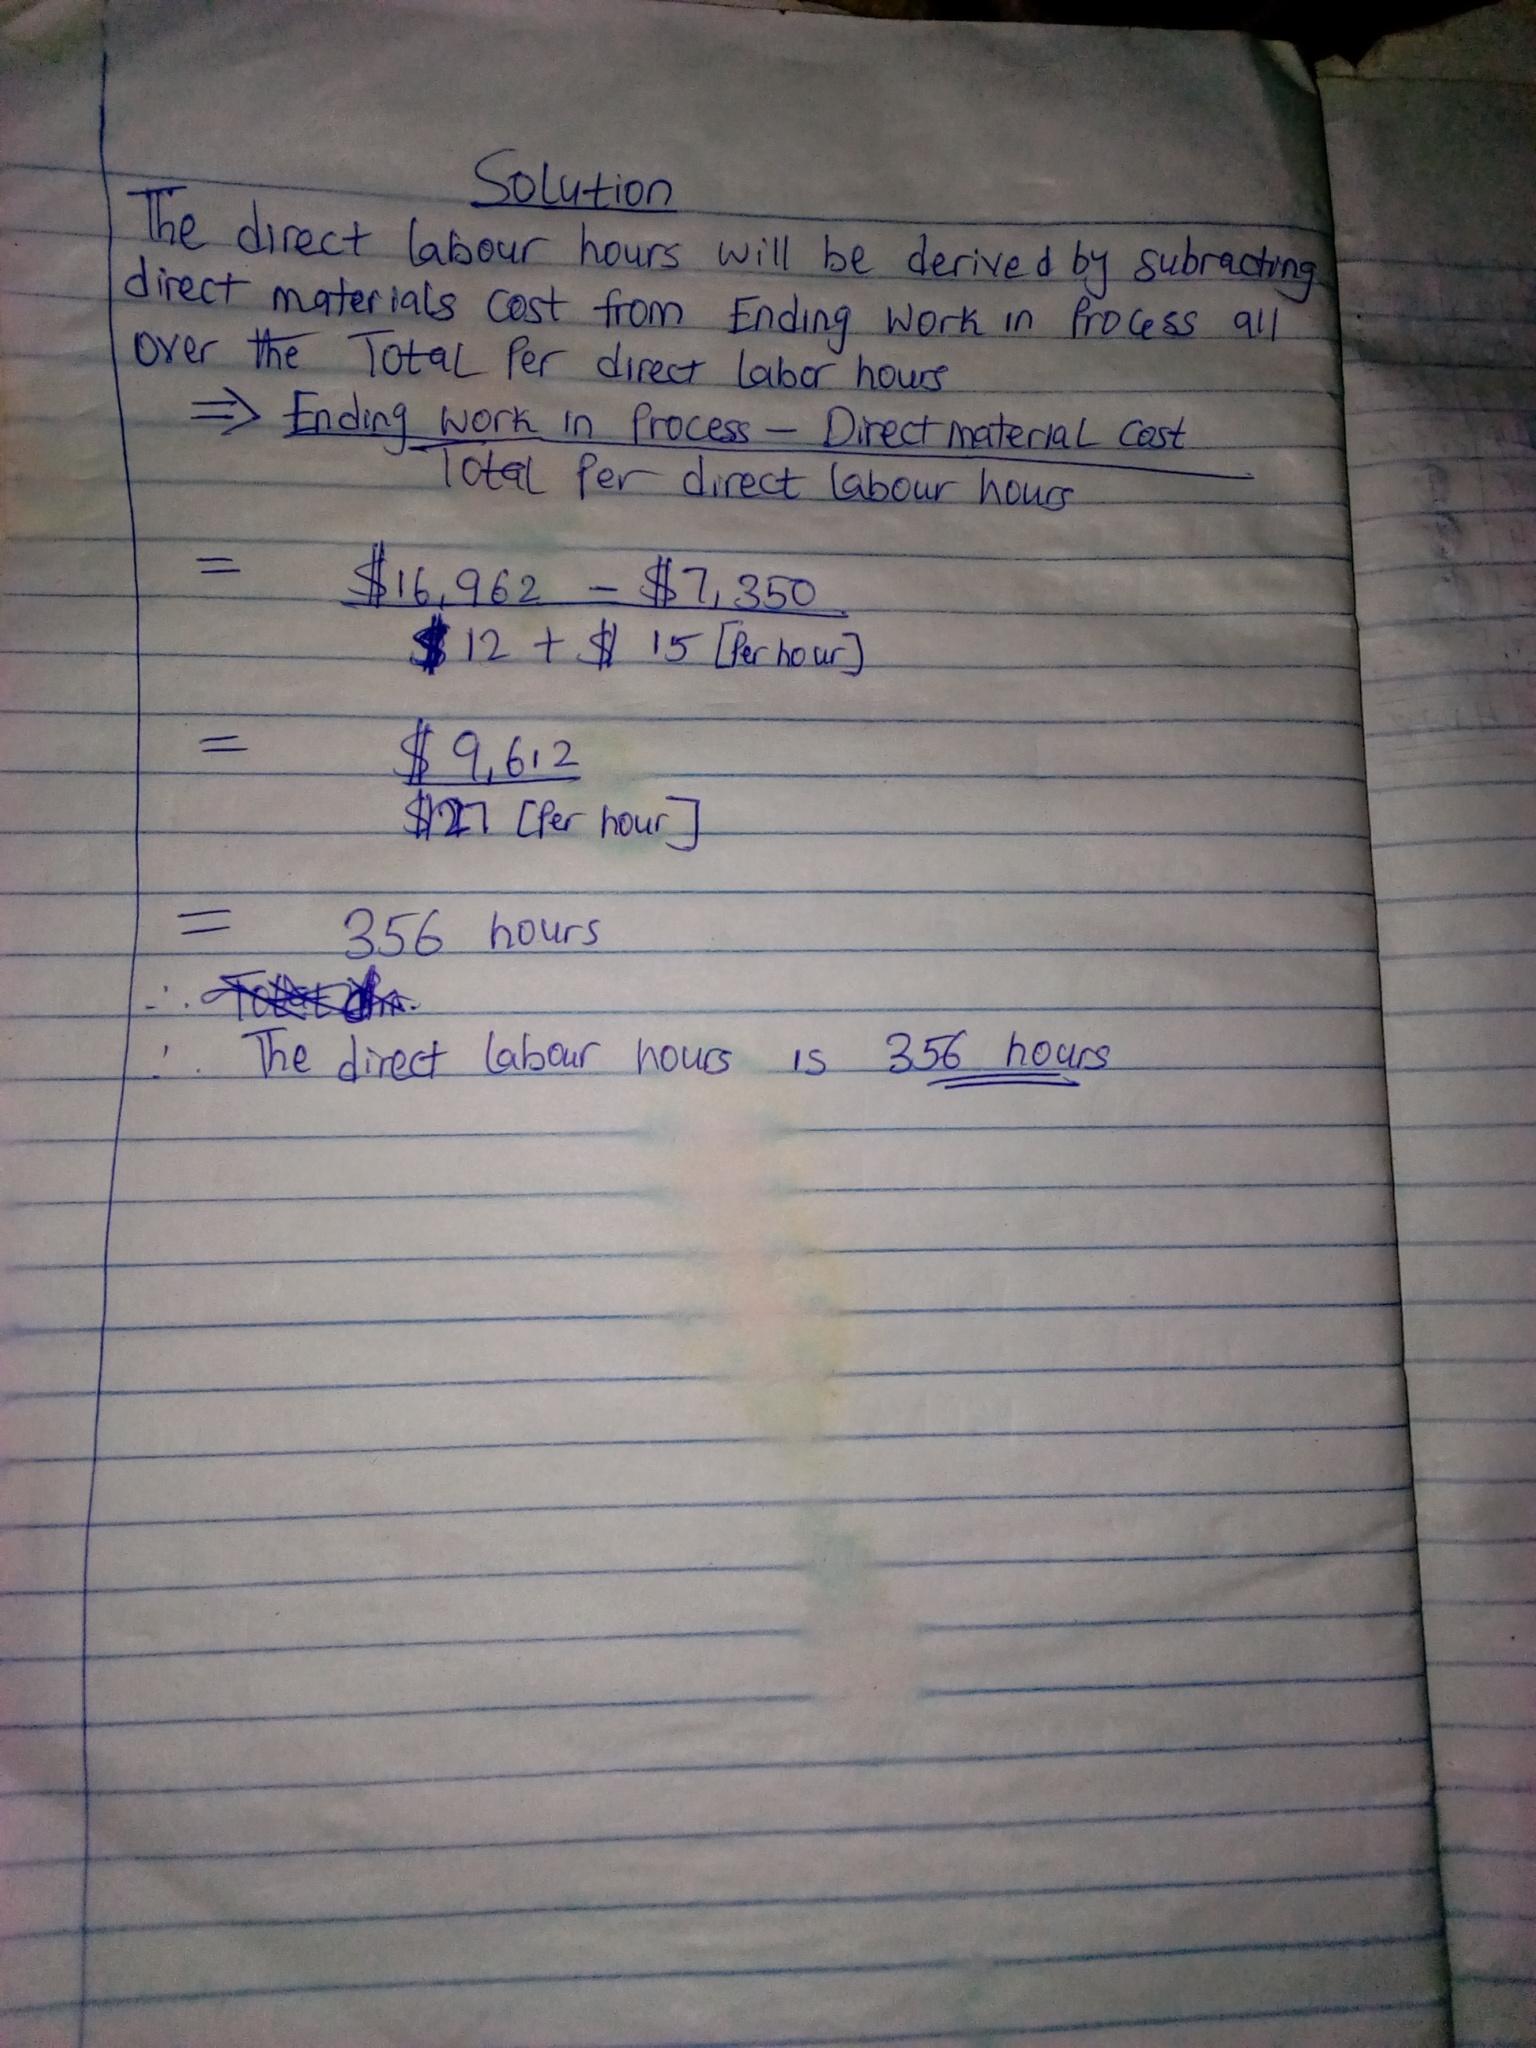 Solution
The direct labour hours will be derived by subracting
direct materials cost from Ending Work in Process all
over the Total Per direct labor hours
⇒ Ending work in Process - Direct material Cost
Total Per direct labour hours
= $16,962 - $7,350
$12 + $ 15 [Per hour]
= $9,612
$27 [Per hour]
= 356 hours
∴
∴ The direct labour hours is 356 hours